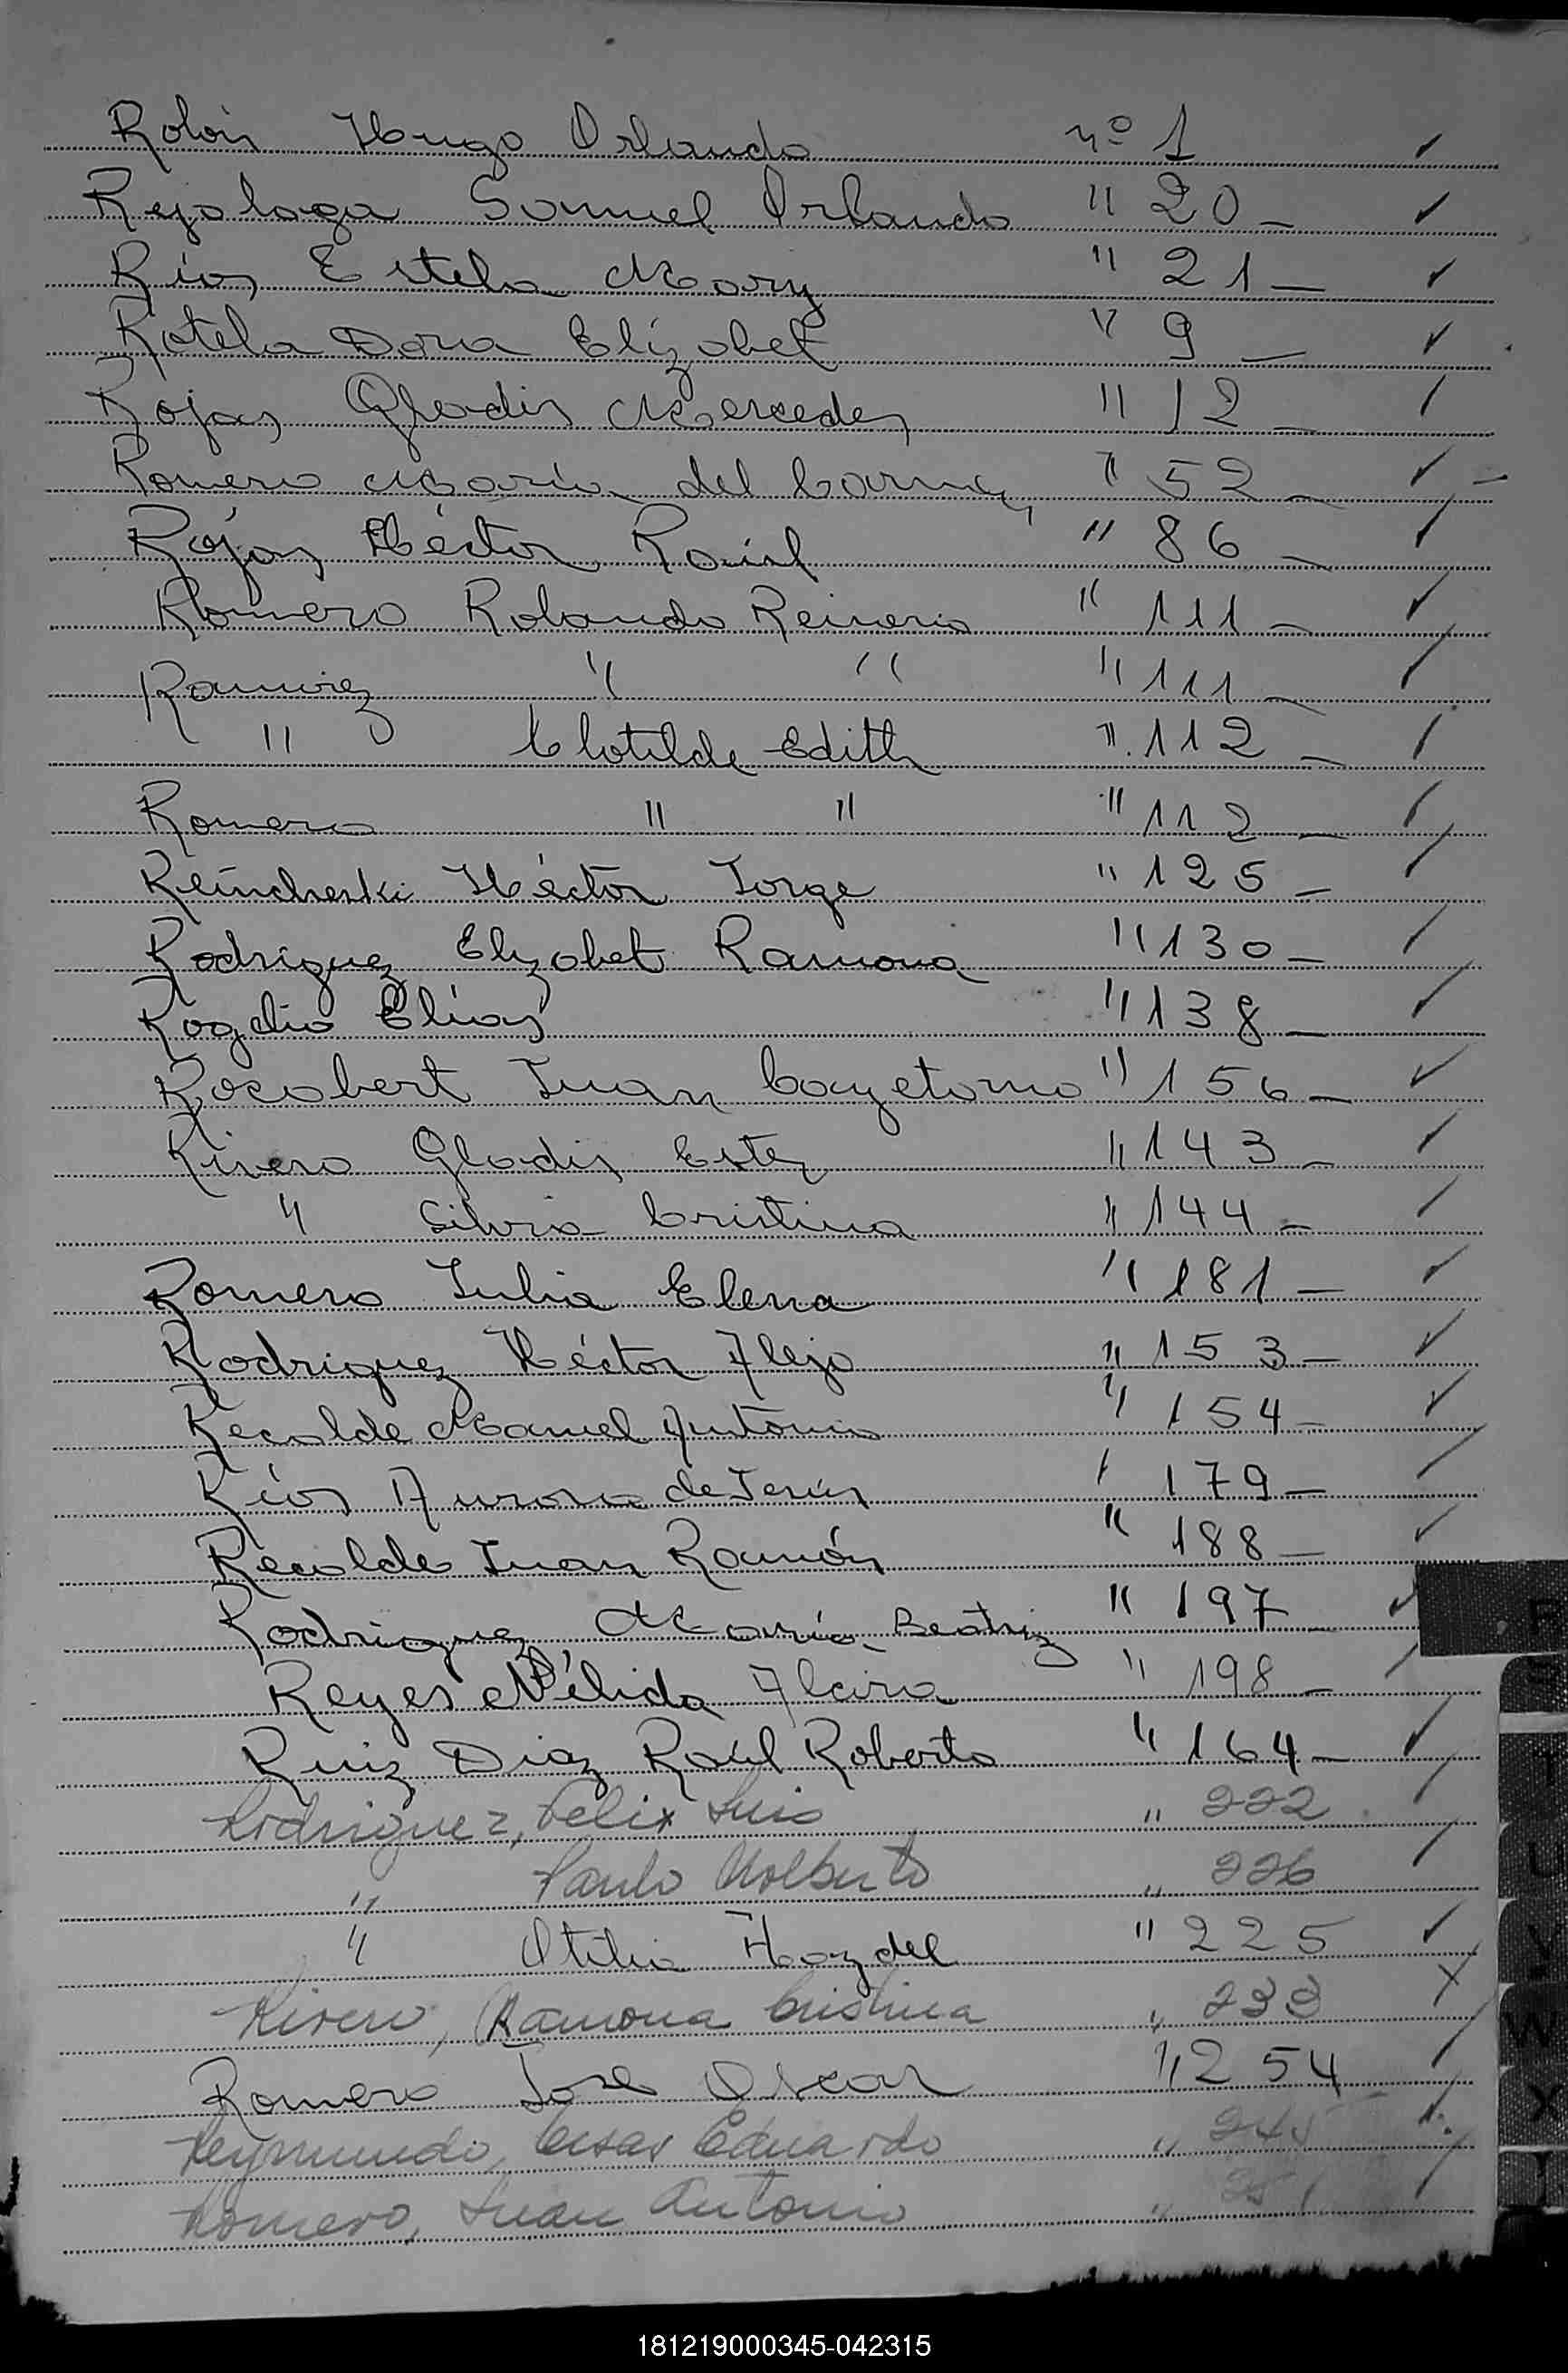 Rolón Hugo Orlando nº 1 ✓
Rejalaga Samuel Orlando " 20 – ✓
Ríos Estela Mary " 21 – ✓
Rotela Dora Elizabet " 9 – ✓
Rojas Gladis Mercedes " 12 – ✓
Romero María del Carmen " 52 – ✓
Rojas Héctor Raúl " 86 – ✓
Romero Rolando Reinerio " 111 – ✓
Ramirez " " " 111 – ✓
" Clotilde Edith " 112 – ✓
Romero " " " 112 – ✓
Reincheski Héctor Jorge " 125 – ✓
Rodriguez Elizabet Ramona " 130 – ✓
Rogelio Elías " 138 – ✓
Rocabert Juan Cayetano " 156 – ✓
Rivero Gladis Ester " 143 – ✓
" Silvia Cristina " 144 – ✓
Romero Julia Elena " 181 – ✓
Rodriguez Héctor Alejo " 153 – ✓
Recalde Manuel Antonio " 154 – ✓
Ríos Aurora de Jesús " 179 – ✓
Recalde Juan Ramón " 188 – ✓
Rodriguez María Beatriz " 197 – ✓
Reyes Nélida Alcira " 198 – ✓
Ruiz Diaz Raúl Roberto " 164 – ✓
Rodriguez, Felix Luis " 222 ✓
" Paulo Nolberto " 226 ✓
" Otilia Hazdel " 225 ✓
Rivero, Ramona Cristina " 233 X
Romero José Oscar " 254 ✓
Reymundo, Cesar Eduardo " ✓
Romero, Juan Antonio " ✓
R
S
T
U
V
W
X
181219000345-042315